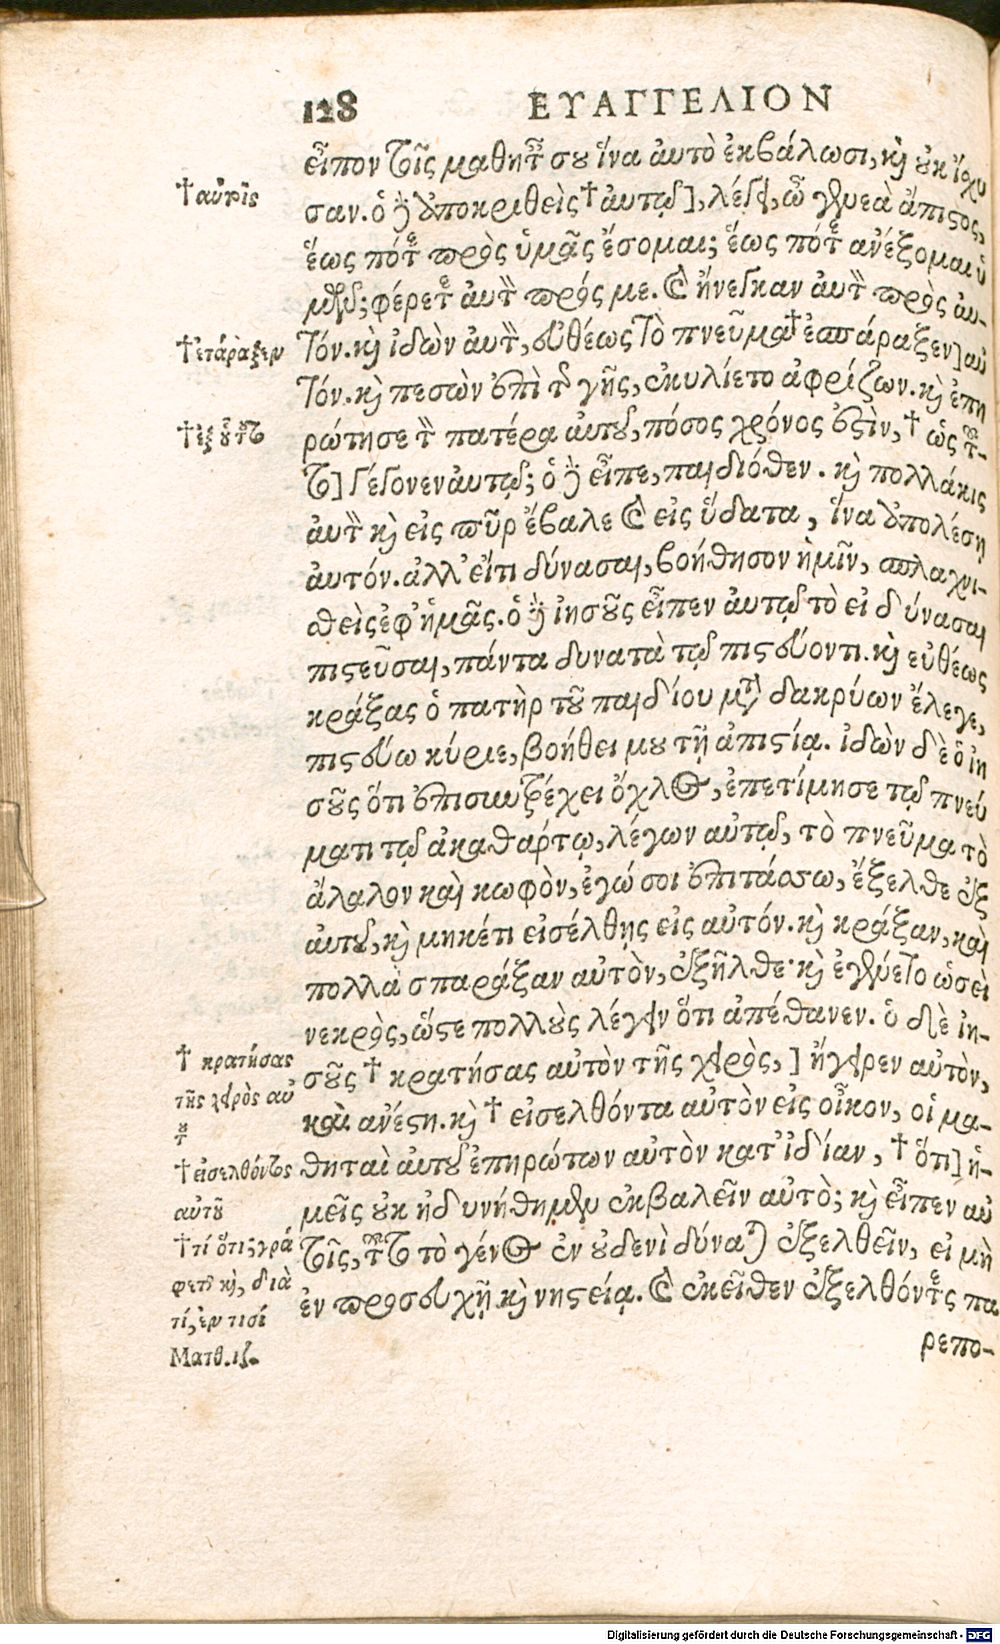 128 ΕΥΑΓΓΕΛΙΟΝ
εἶπον τοῖς μαθηταῖς σου ἵνα αὐτὸ ἐκβάλωσι, καὶ οὐκ ἴσχυ
†αὐτοῖς
σαν. ὁ δὲ ἀποκριθεὶς † αὐτῷ], λέγει, ὦ γενεὰ ἄπιστος,
ἕως πότε πρὸς ὑμᾶς ἔσομαι; ἕως πότε ἀνέξομαι ὑ
μῶν; φέρετε αὐτὸν πρός με. καὶ ἤνεγκαν αὐτὸν πρὸς αὐ-
†ἐτάραξεν
τόν. καὶ ἰδὼν αὐτὸν, εὐθέως τὸ πνεῦμα † ἐσπάραξεν] αὐ
τόν. καὶ πεσὼν ἐπὶ τῆς γῆς, ἐκυλίετο ἀφρίζων. καὶ ἐπη
†ἐξ οὗ τοῦτο
ρώτησε τὸν πατέρα αὐτοῦ, πόσος χρόνος ἐστὶν, † ὡς τοῦ-
το] γέγονεν αὐτῷ; ὁ δὲ εἶπε, παιδιόθεν. καὶ πολλάκις
αὐτὸν καὶ εἰς πῦρ ἔβαλε καὶ εἰς ὕδατα, ἵνα ἀπολέσῃ
αὐτόν. ἀλλ' εἴτι δύνασαι, βοήθησον ἡμῖν, σπλαχνι-
σθεὶς ἐφ' ἡμᾶς. ὁ δὲ ἰησοῦς εἶπεν αὐτῷ τὸ εἰ δύνασαι
πιστεῦσαι, πάντα δυνατὰ τῷ πιστεύοντι. καὶ εὐθέως
κράξας ὁ πατὴρ τοῦ παιδίου μετὰ δακρύων ἔλεγε,
πιστεύω κύριε, βοήθει μου τῇ ἀπιστίᾳ. ἰδὼν δὲ ὁ ἰη
σοῦς ὅτι ἐπισυντρέχει ὄχλος, ἐπετίμησε τῷ πνεύ
ματι τῷ ἀκαθάρτῳ, λέγων αὐτῷ, τὸ πνεῦμα τὸ
ἄλαλον καὶ κωφὸν, ἐγώ σοι ἐπιτάσσω, ἔξελθε ἐξ
αὐτοῦ, καὶ μηκέτι εἰσέλθῃς εἰς αὐτόν. καὶ κράξαν, καὶ
πολλὰ σπαράξαν αὐτὸν, ἐξῆλθε· καὶ ἐγένετο ὡσεὶ
νεκρὸς, ὥστε πολλοὺς λέγειν ὅτι ἀπέθανεν. ὁ δὲ ἰη-
† κρατήσας
τῆς χειρὸς αὐ
τοῦ
σοῦς † κρατήσας αὐτὸν τῆς χειρὸς, ] ἤγειρεν αὐτὸν,
καὶ ἀνέστη. καὶ † εἰσελθόντα αὐτὸν εἰς οἶκον, οἱ μα-
†εἰσελθόντος
αὐτοῦ
θηταὶ αὐτοῦ ἐπηρώτων αὐτὸν κατ' ἰδίαν, † ὅτι] ἡ-
μεῖς οὐκ ἠδυνήθημεν ἐκβαλεῖν αὐτὸ; καὶ εἶπεν αὐ
†τί ὅτι; γρά
φεται καὶ, διὰ
τί, ἔν τισί
Ματθ. ιζ.
τοῖς, τοῦτο τὸ γένος ἐν οὐδενὶ δύναται ἐξελθεῖν, εἰ μὴ
ἐν προσευχῇ καὶ νηστείᾳ. καὶ ἐκεῖθεν ἐξελθόντες πα
ρεπο-
Digitalisierung gefördert durch die Deutsche Forschungsgemeinschaft - DFG